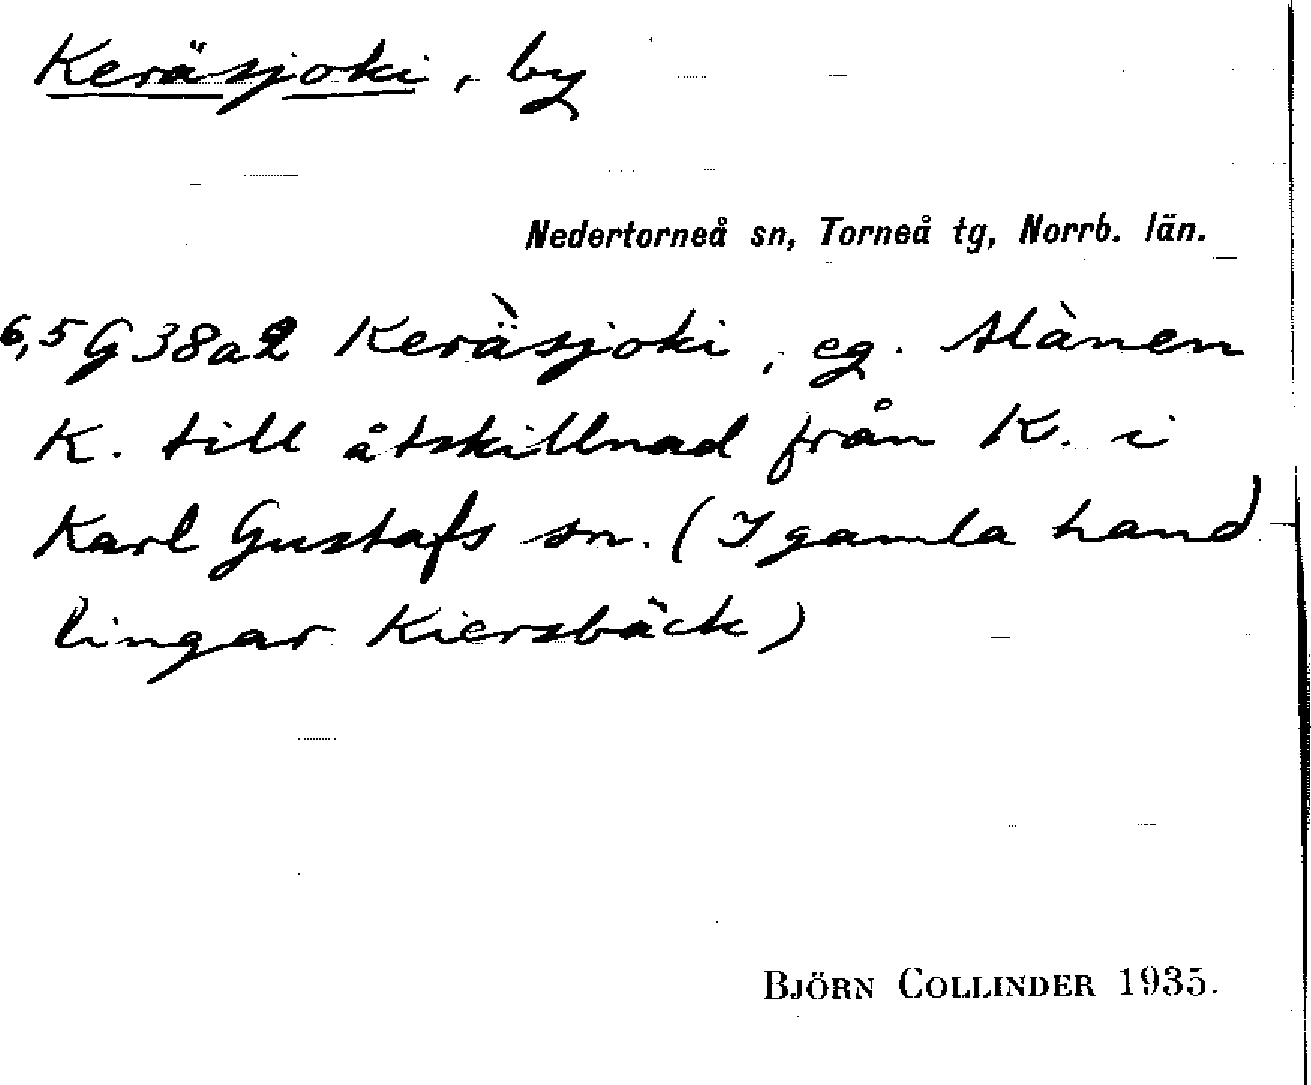 Keräsjoki, by
Nedertorneå sn, Torneå tg, Norrb. län.
6,5 G 38a2 Keräsjoki, eg. Alanen
K. till åtskillnad från K. i
Karl Gustafs sn. (I gamla hand
lingar Kiersbäck)
BJÖRN COLLINDER 1935.